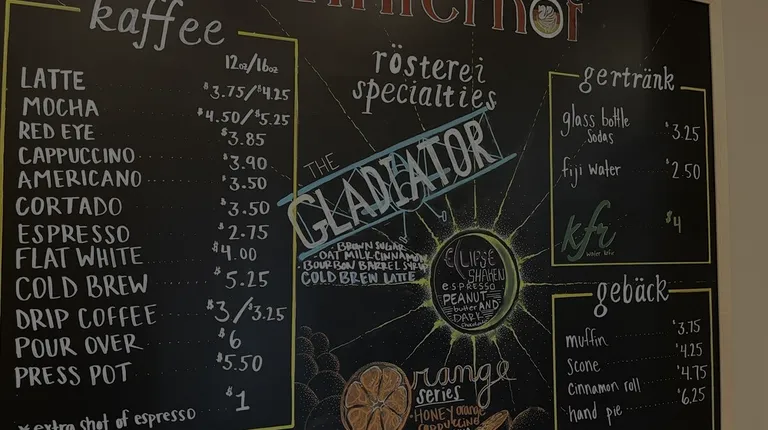 kaffee
12oz/16oz
LATTE $3.75/$4.25
MOCHA $4.50/$5.25
RED EYE $3.85
CAPPUCCINO $3.90
AMERICANO $3.50
CORTADO $3.50
ESPRESSO $2.75
FLAT WHITE $4.00
COLD BREW $5.25
DRIP COFFEE $3/$3.25
POUR OVER $6
PRESS POT $5.50
*extra shot of espresso $1
rösterei
specialties
THE
GLADIATOR
- BROWN SUGAR
- OAT MILK CINNAMON
BOURBON BARREL SYRUP
COLD BREW LATTE
ECLIPSE
SHAKEN
ESPRESSO
PEANUT
butter AND
DARK
chocolate
orange
series
- HONEY orange
CAPPUCCINO
gertränk
glass bottle
Sodas $3.25
fiji water $2.50
kfr $4
water kefir
gebäck
muffin $3.75
scone $4.25
cinnamon roll $4.75
hand pie $6.25